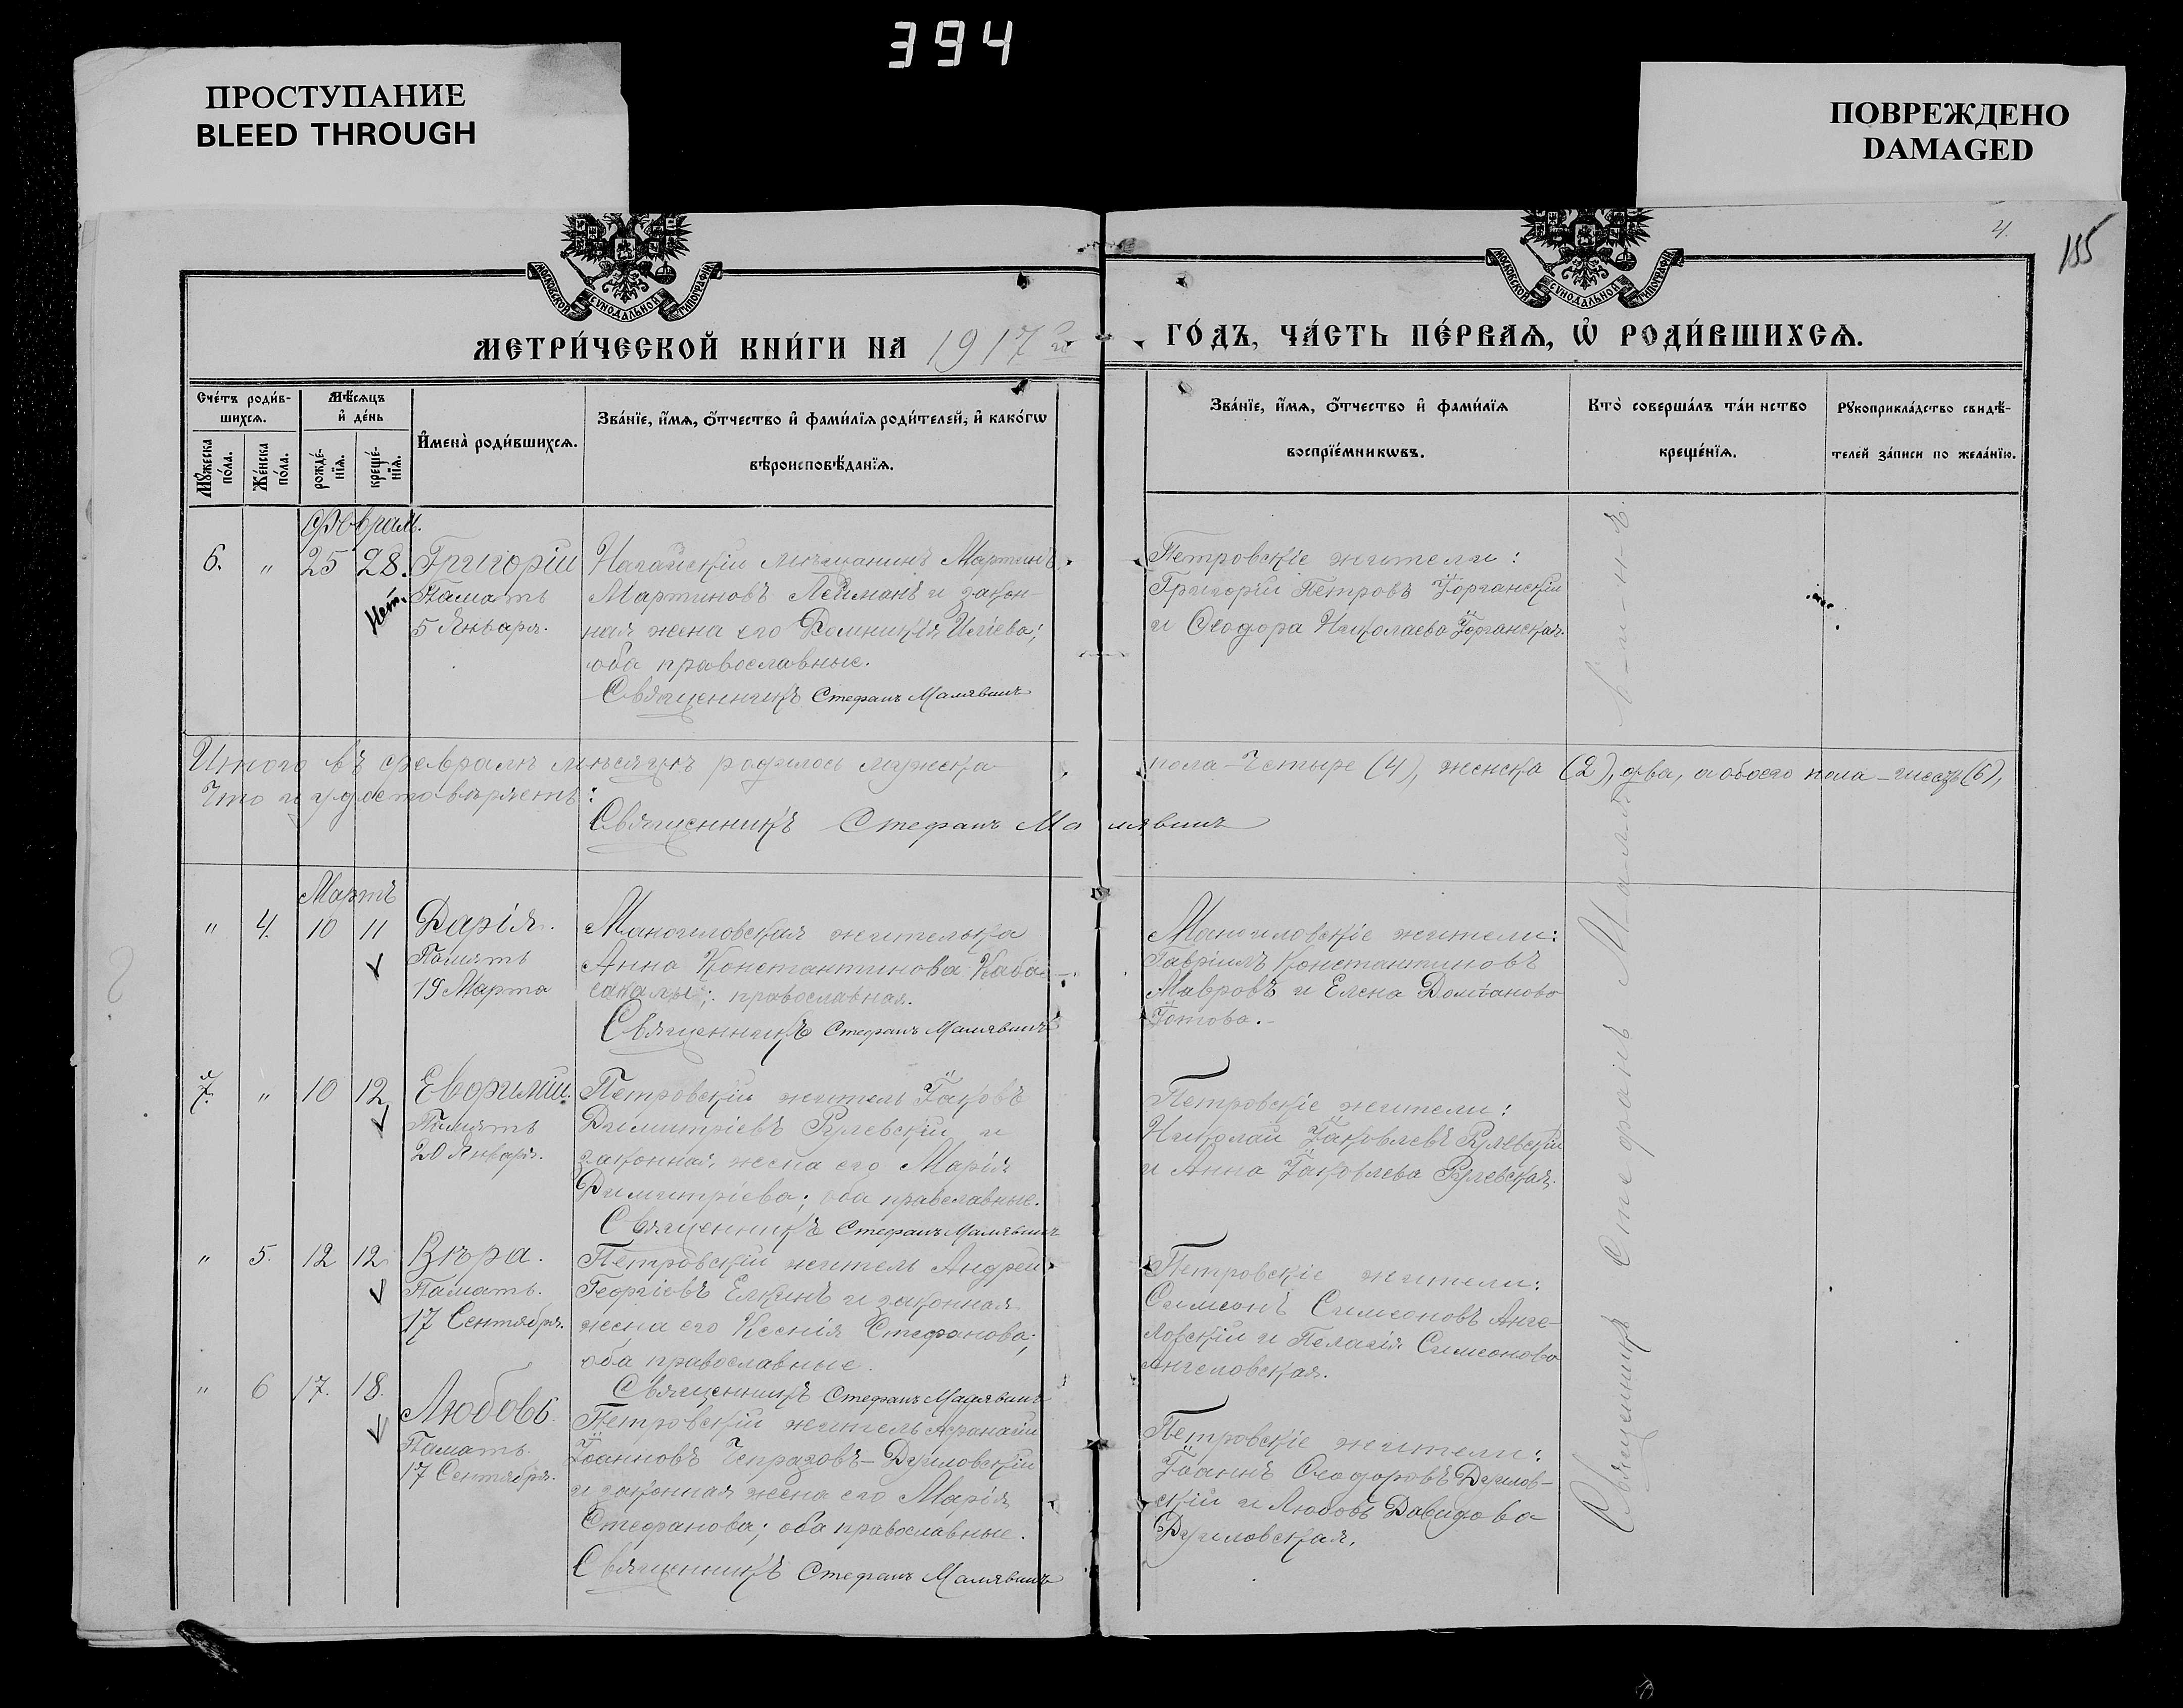 394
ПРОСТУПАНИЕ
BLEED THROUGH
ПОВРЕЖДЕНО
DAMAGED
4.
155
МОСКОВСКОЙ СѴНОДАЛЬНОЙ ТИПОГРАФІИ
МОСКОВСКОЙ СѴНОДАЛЬНОЙ ТИПОГРАФІИ
МЕТРИ́ЧЕСКОЙ КНИ́ГИ НА 1917 го
ГО́ДЪ, ЧА́СТЬ ПЕ́РВАѦ, Ѡ҆ РОДИ́ВШИХСѦ.
Сче́тъ роди́в-
шихсѧ.
Мѣ́сѧцъ
и҆ де́нь
Мꙋ́жеска
по́ла.
Же́нска
по́ла.
рожде́-
нїѧ.
креще́-
нїѧ.
И҆мена̀ роди́вшихсѧ.
Зва́нїе, и҆́мѧ, ѻ҆́тчество и҆ фами́лїѧ роди́телей, и҆ како́гѡ
вѣроисповѣ́данїѧ.
Зва́нїе, и҆́мѧ, ѻ҆́тчество и҆ фами́лїѧ
воспрїе́мникѡвъ.
Кто̀ соверша́лъ та́инство
креще́нїѧ.
Рꙋкоприкла́дство свидѣ́-
телей за́писи по жела́нїю.
Феврал.
6. " 25 28. Григорій
Память
5 Января.
мѣщанинъ Мартинъ
Мартиновъ Лейманъ и закон-
ная жена его Домникія
оба православные.
Священникъ Стефанъ Малявинъ
Петровскіе жители:
Григорій Петровъ Їорганскій
и Ѳеодора Николаева Їорганская.
Итого въ февралѣ мѣсяцѣ родилось мужска
пола-четыре (4), женска (2), два, а обоего пола-шесть (6),
Что и удостовѣряетъ:
Священникъ Стефанъ Малявинъ
Мартъ
" 4. 10 11 Дарія.
Память
19 Марта
Маногиловская жителька
Анна Константинова
православная.
Священникъ Стефанъ Малявинъ
Маногиловскіе жители:
Гавріилъ Константиновъ
Мавровъ и Елена Доміанова
Їотова.
7. " 10 12 Евфимій.
Память
20 Января.
Петровскій житель Їаковъ
Димитріевъ Рулевскій и
законная жена его Марія
Димитріева; оба православные.
Священникъ Стефанъ Малявинъ
Петровскіе жители:
Николай Їаковлевъ Рулевскій
и Анна Їаковлева Рулевская.
" 5. 12 12 Вѣра.
Память.
17 Сентября.
Петровскій житель Андрей
Георгіевъ Елкинъ и законная
жена его Ксенія Стефанова;
оба православные.
Священникъ Стефанъ Малявинъ
Петровскіе жители:
Симеонъ Симеоновъ Анге-
ловскій и Пелагія Симеонова
Ангеловская.
" 6 17. 18. Любовь.
Память.
17 Сентября.
Петровскій житель Афанасій
Їоанновъ
и законная жена его Марія
Стефанова; оба православные.
Священникъ Стефанъ Малявинъ
Петровскіе жители:
Їоаннъ Ѳеодоровъ
скій и Любовь Давидова
Священникъ Стефанъ Малявинъ